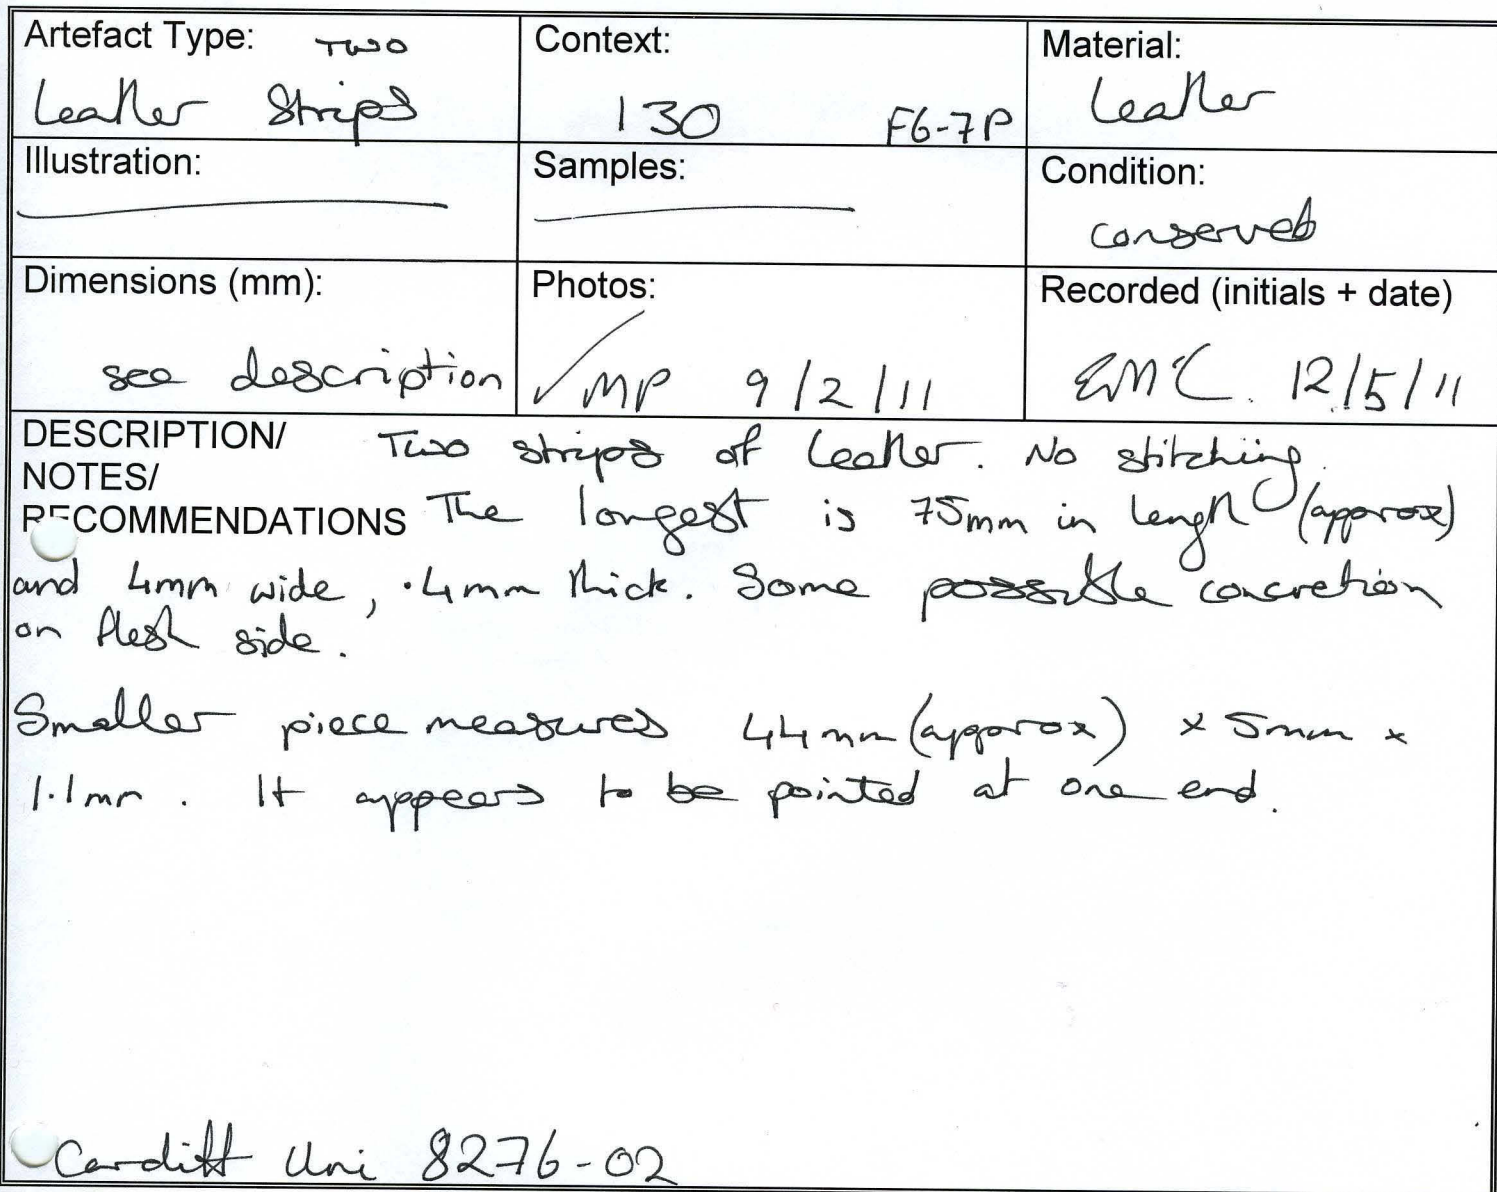 Artefact Type: Two
Leather Strips
Context:
130 F6-7P
Material:
Leather
Illustration:
Samples:
Condition:
conserved
Dimensions (mm):
see description
Photos:
✓ MP 9/2/11
Recorded (initials + date)
EMC. 12/5/11
DESCRIPTION/ Two strips of leather. No stitching.
NOTES/
RECOMMENDATIONS The longest is 75mm in length (approx)
and 4mm wide, .4mm thick. Some possible concretion
on flesh side.
Smaller piece measures 44mm (approx) x 5mm x
1.1mm. It appears to be pointed at one end.
Cardiff Uni 8276-02